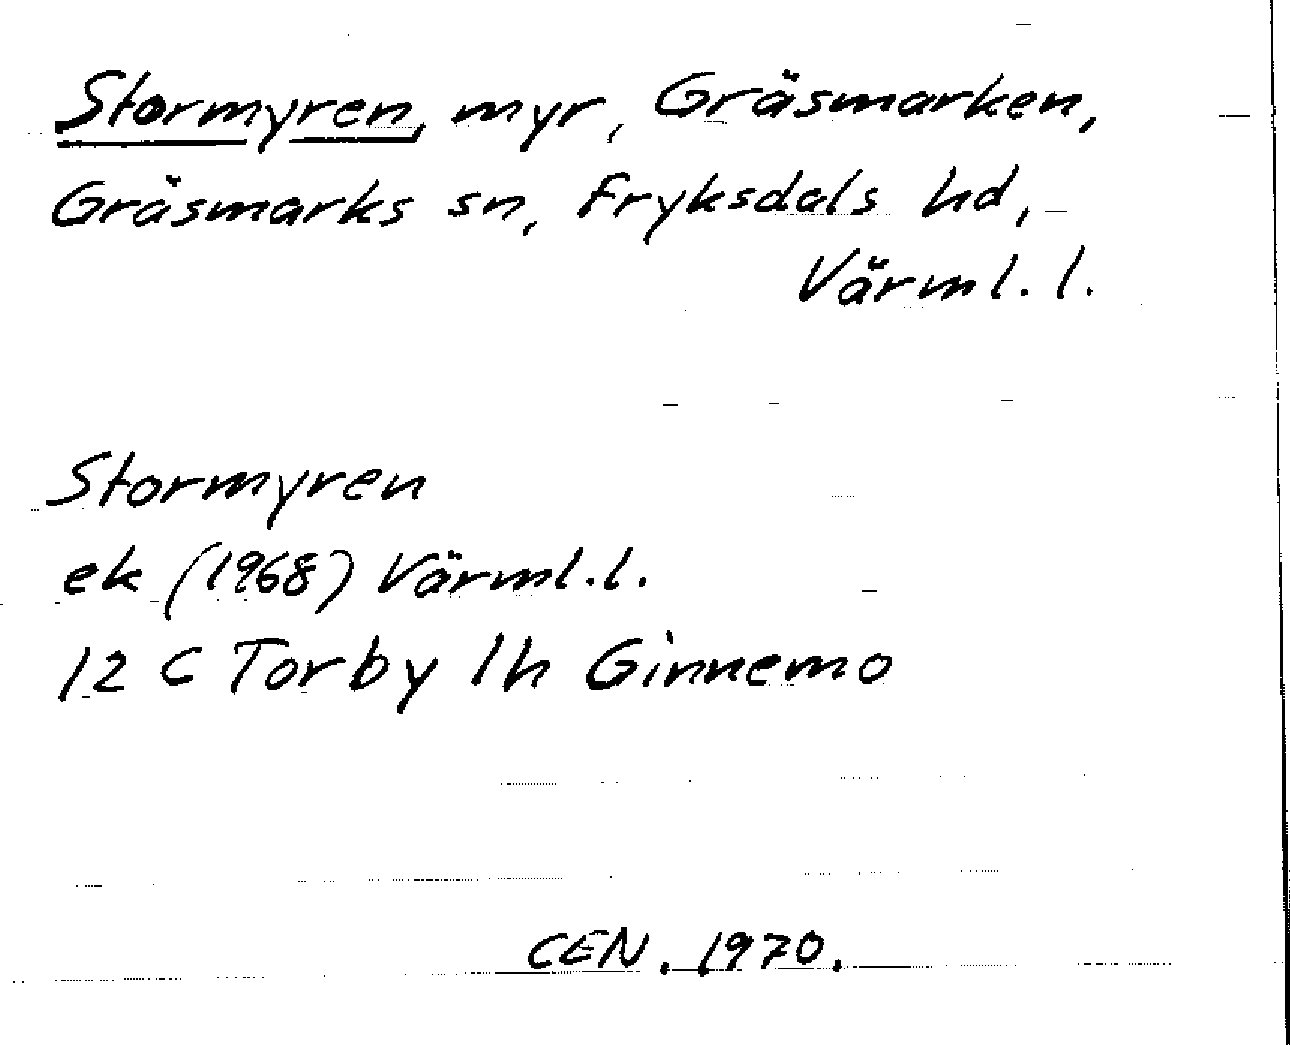 Stormyren, myr, Gräsmarken,
Gräsmarks sn, Fryksdals hd,
Värml. l.
Stormyren
ek (1968) Värml. l.
12 C Torby 1h Ginnemo
CEN. 1970.